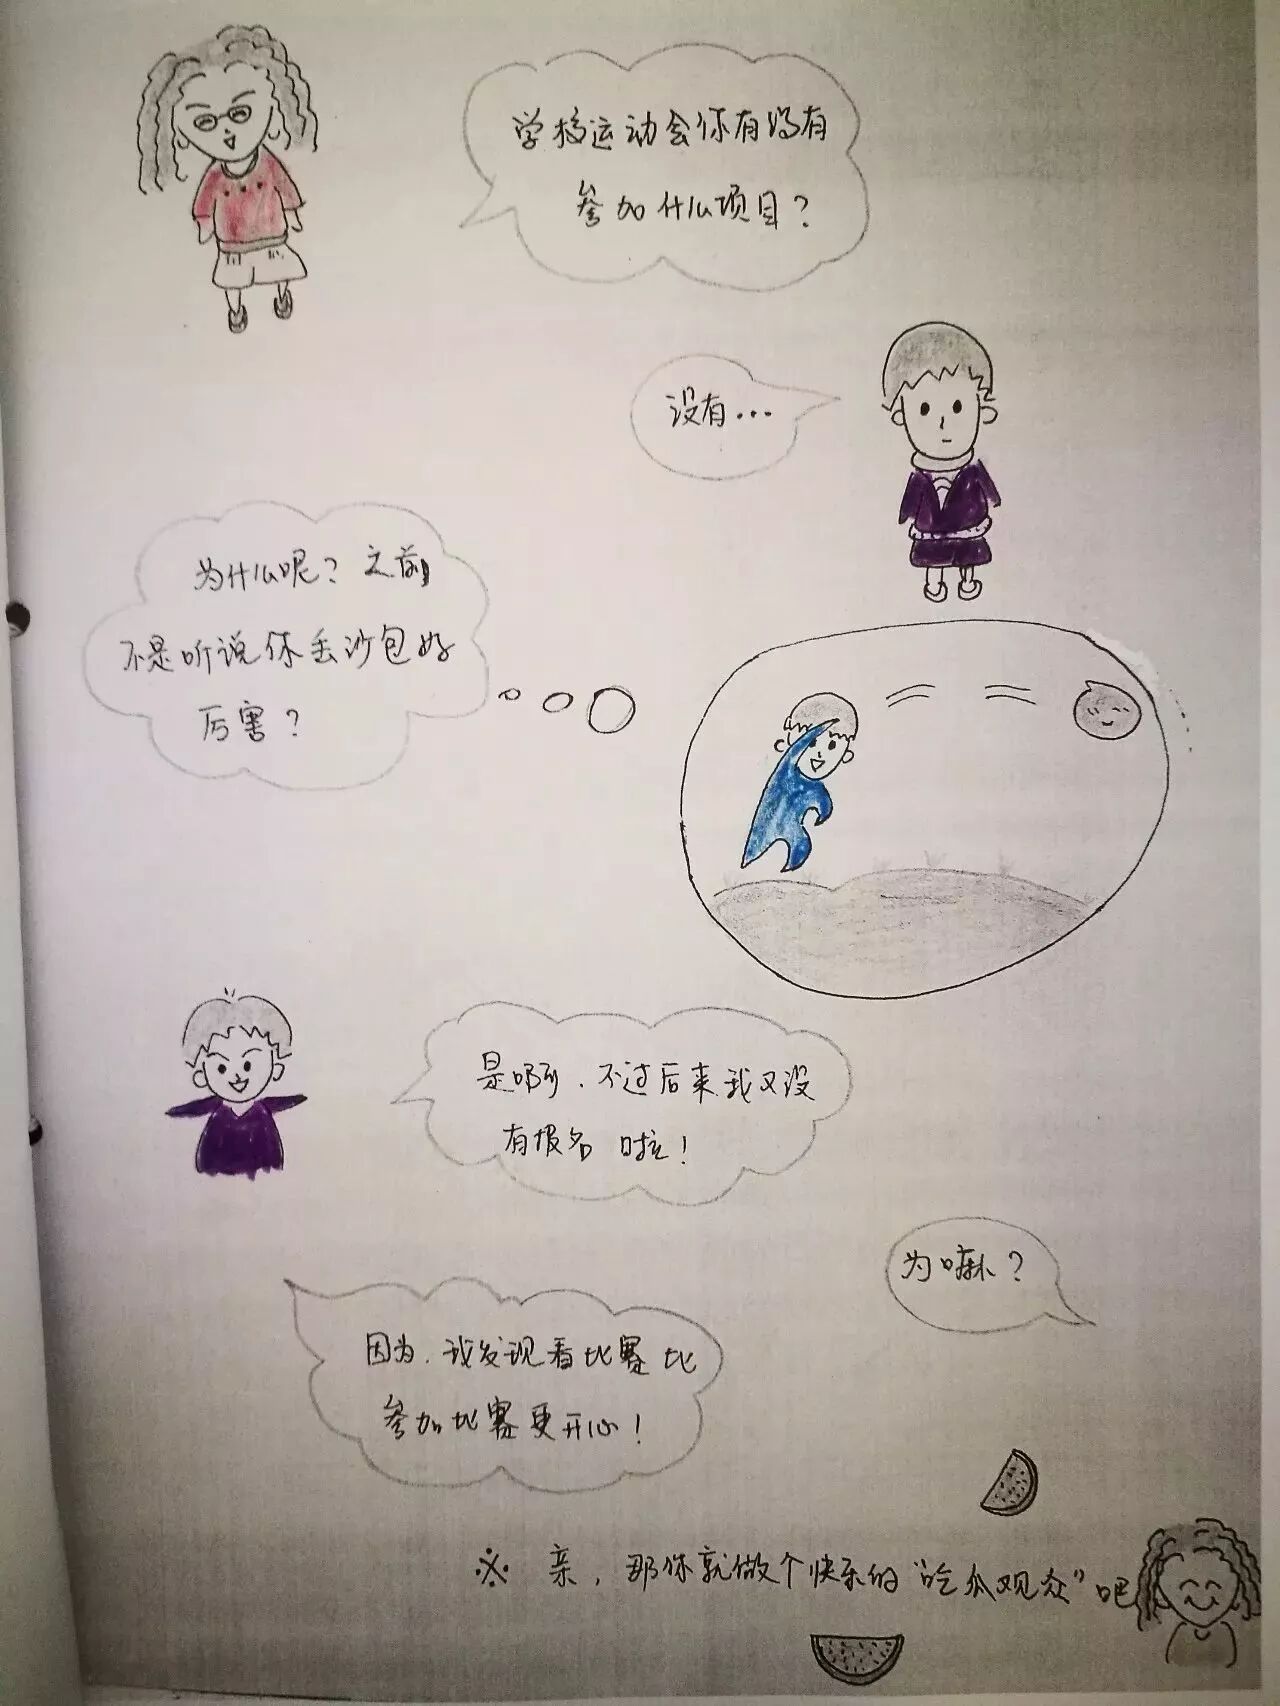 学校运动会你有没有
参加什么项目？
没有...
为什么呢？之前
不是听说你丢沙包好
厉害？
是啊，不过后来我又没
有报名啦！
为嘛？
因为，我发现看比赛比
参加比赛更开心！
※ 亲，那你就做个快乐的“吃瓜观众”吧